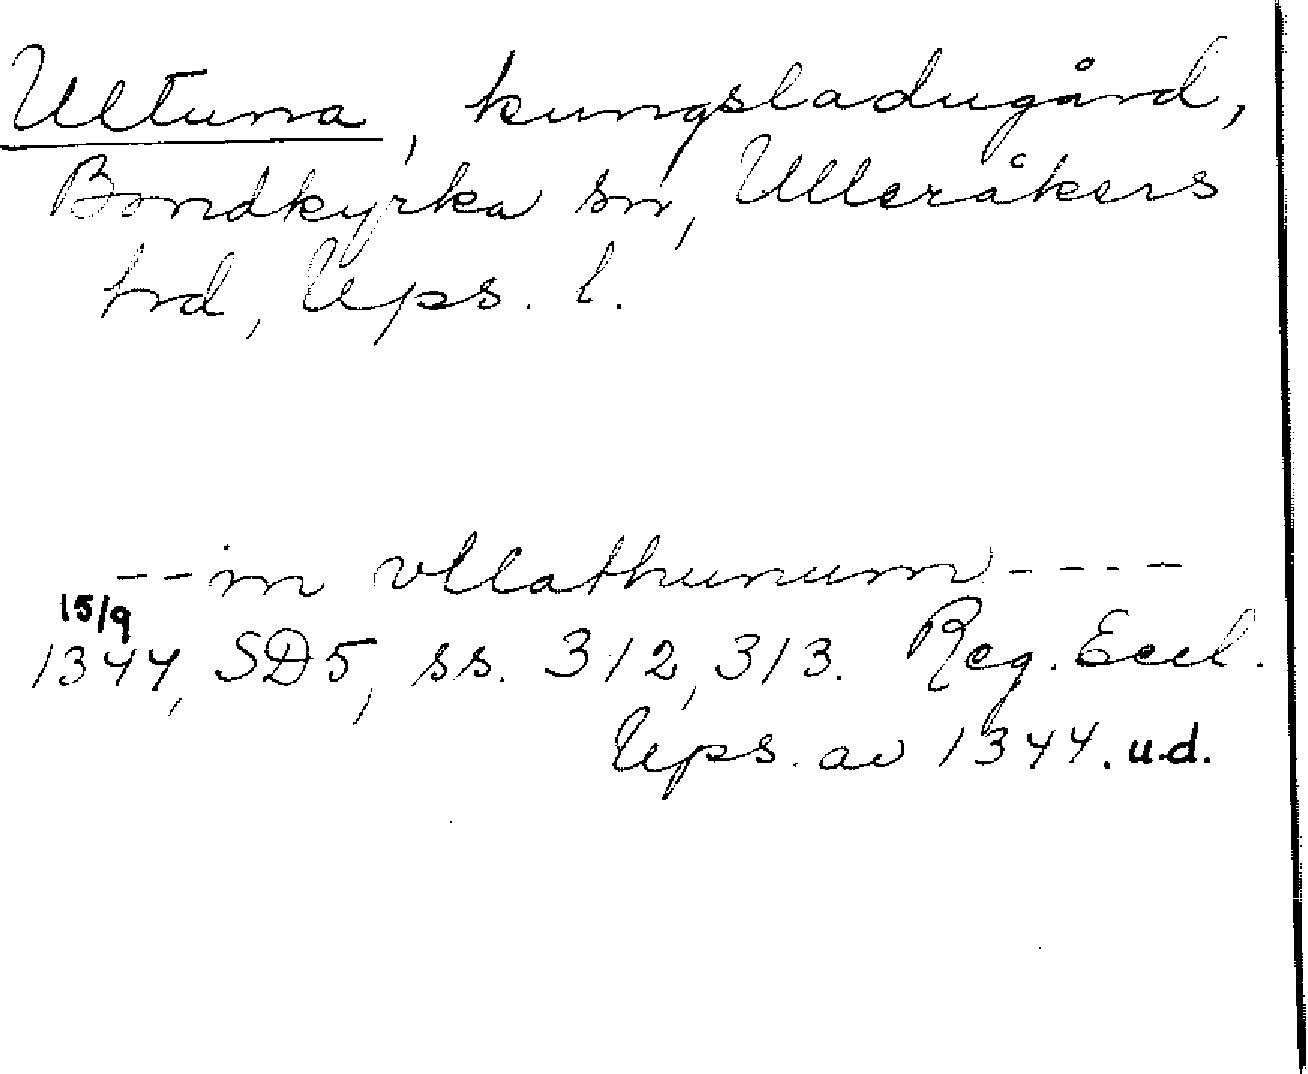 Ultuna, kungsladugård,
Bondkyrka sn, Ulleråkers
hd, Ups. l.
-- in vllathunum ----
15/9
1344, SD5, ss. 312, 313. Reg. Eccl.
Ups. av 1344. u.d.